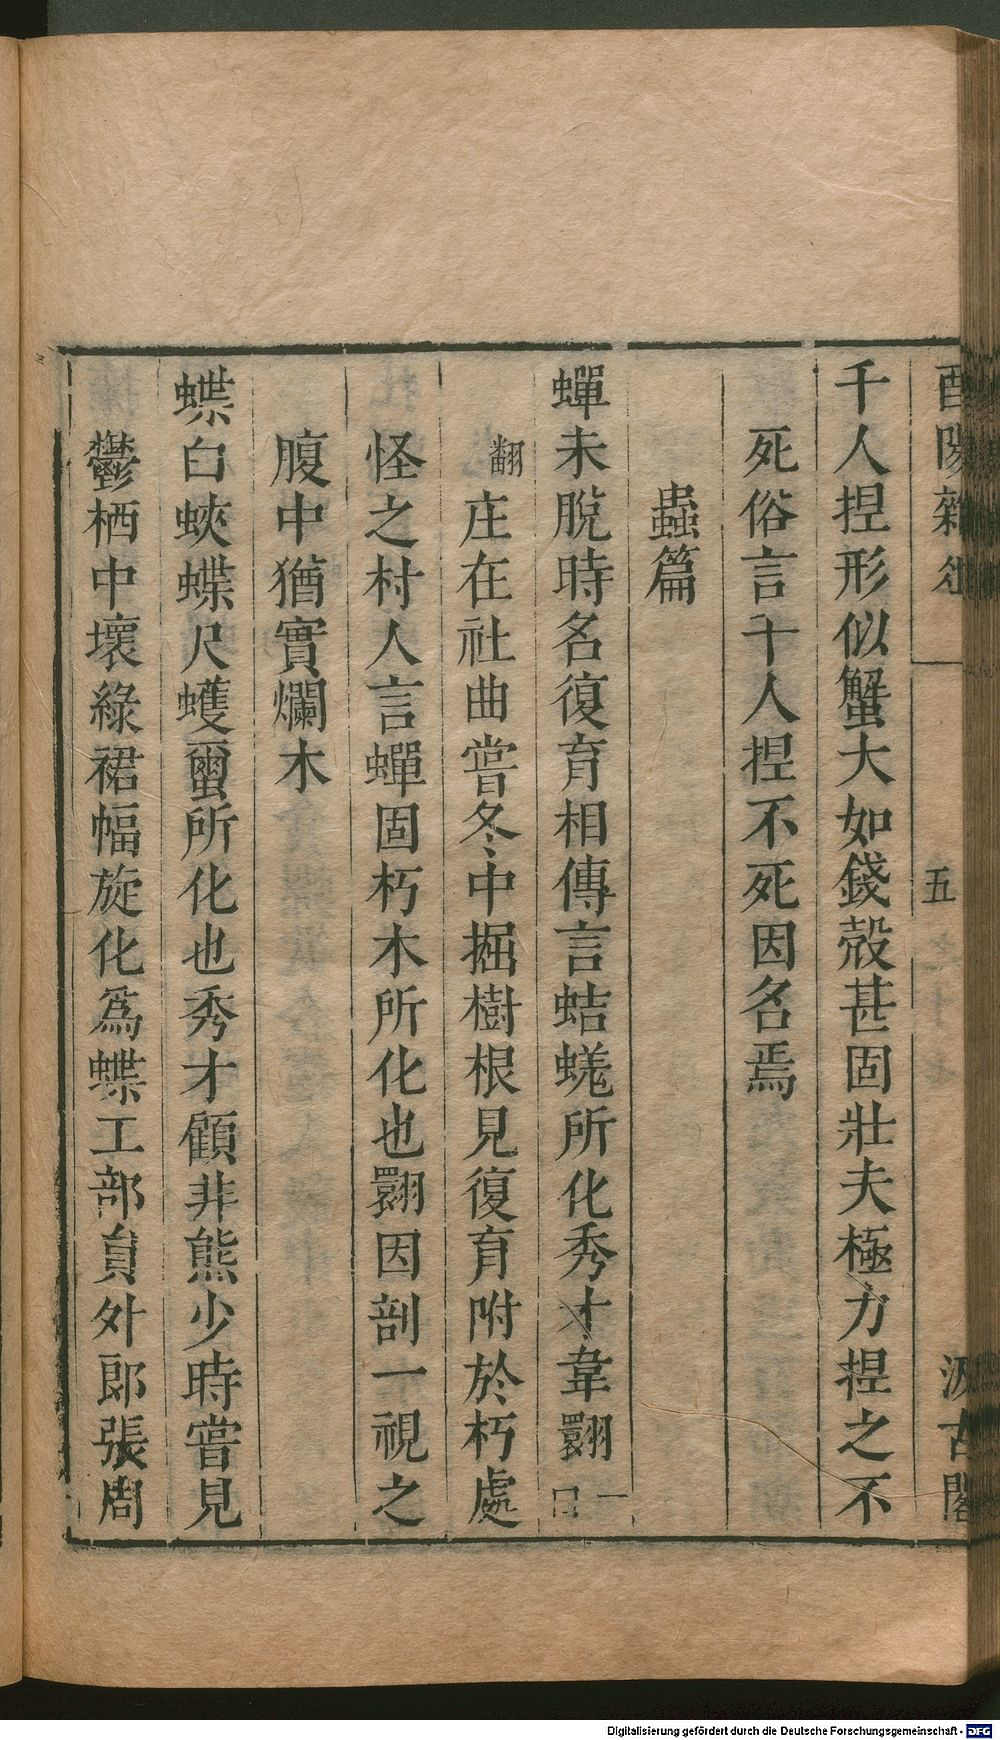 酉陽雜俎
五
汲古閣
千人捏形似蟹大如錢殼甚固壯夫極力捏之不
死俗言千人捏不死因名焉
蟲篇
蟬未脫時名復育相傳言蛣蜣所化秀才韋翾一口
翻庄在社曲嘗冬中掘樹根見復育附於朽處
怪之村人言蟬固朽木所化也翾因剖一視之
腹中猶實爛木
蝶白蛺蝶尺蠖蠒所化也秀才顧非熊少時嘗見
鬱栖中壞綠裙幅旋化爲蝶工部員外郎張周
Digitalisierung gefördert durch die Deutsche Forschungsgemeinschaft - DFG